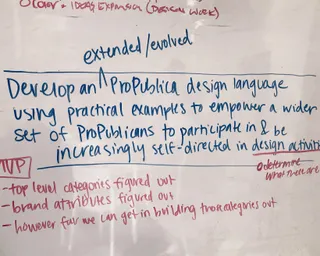 COLOR + IDEAS EXPANSION (DESIGN WORK)
extended/evolved
Develop an ^ ProPublica design language
using practical examples to empower a wider
set of ProPublicans to participate in & be
increasingly self-directed in design activit
determine
what these are
MVP
- top level categories figured out
- brand attributes figured out
- however far we can get in building those categories out